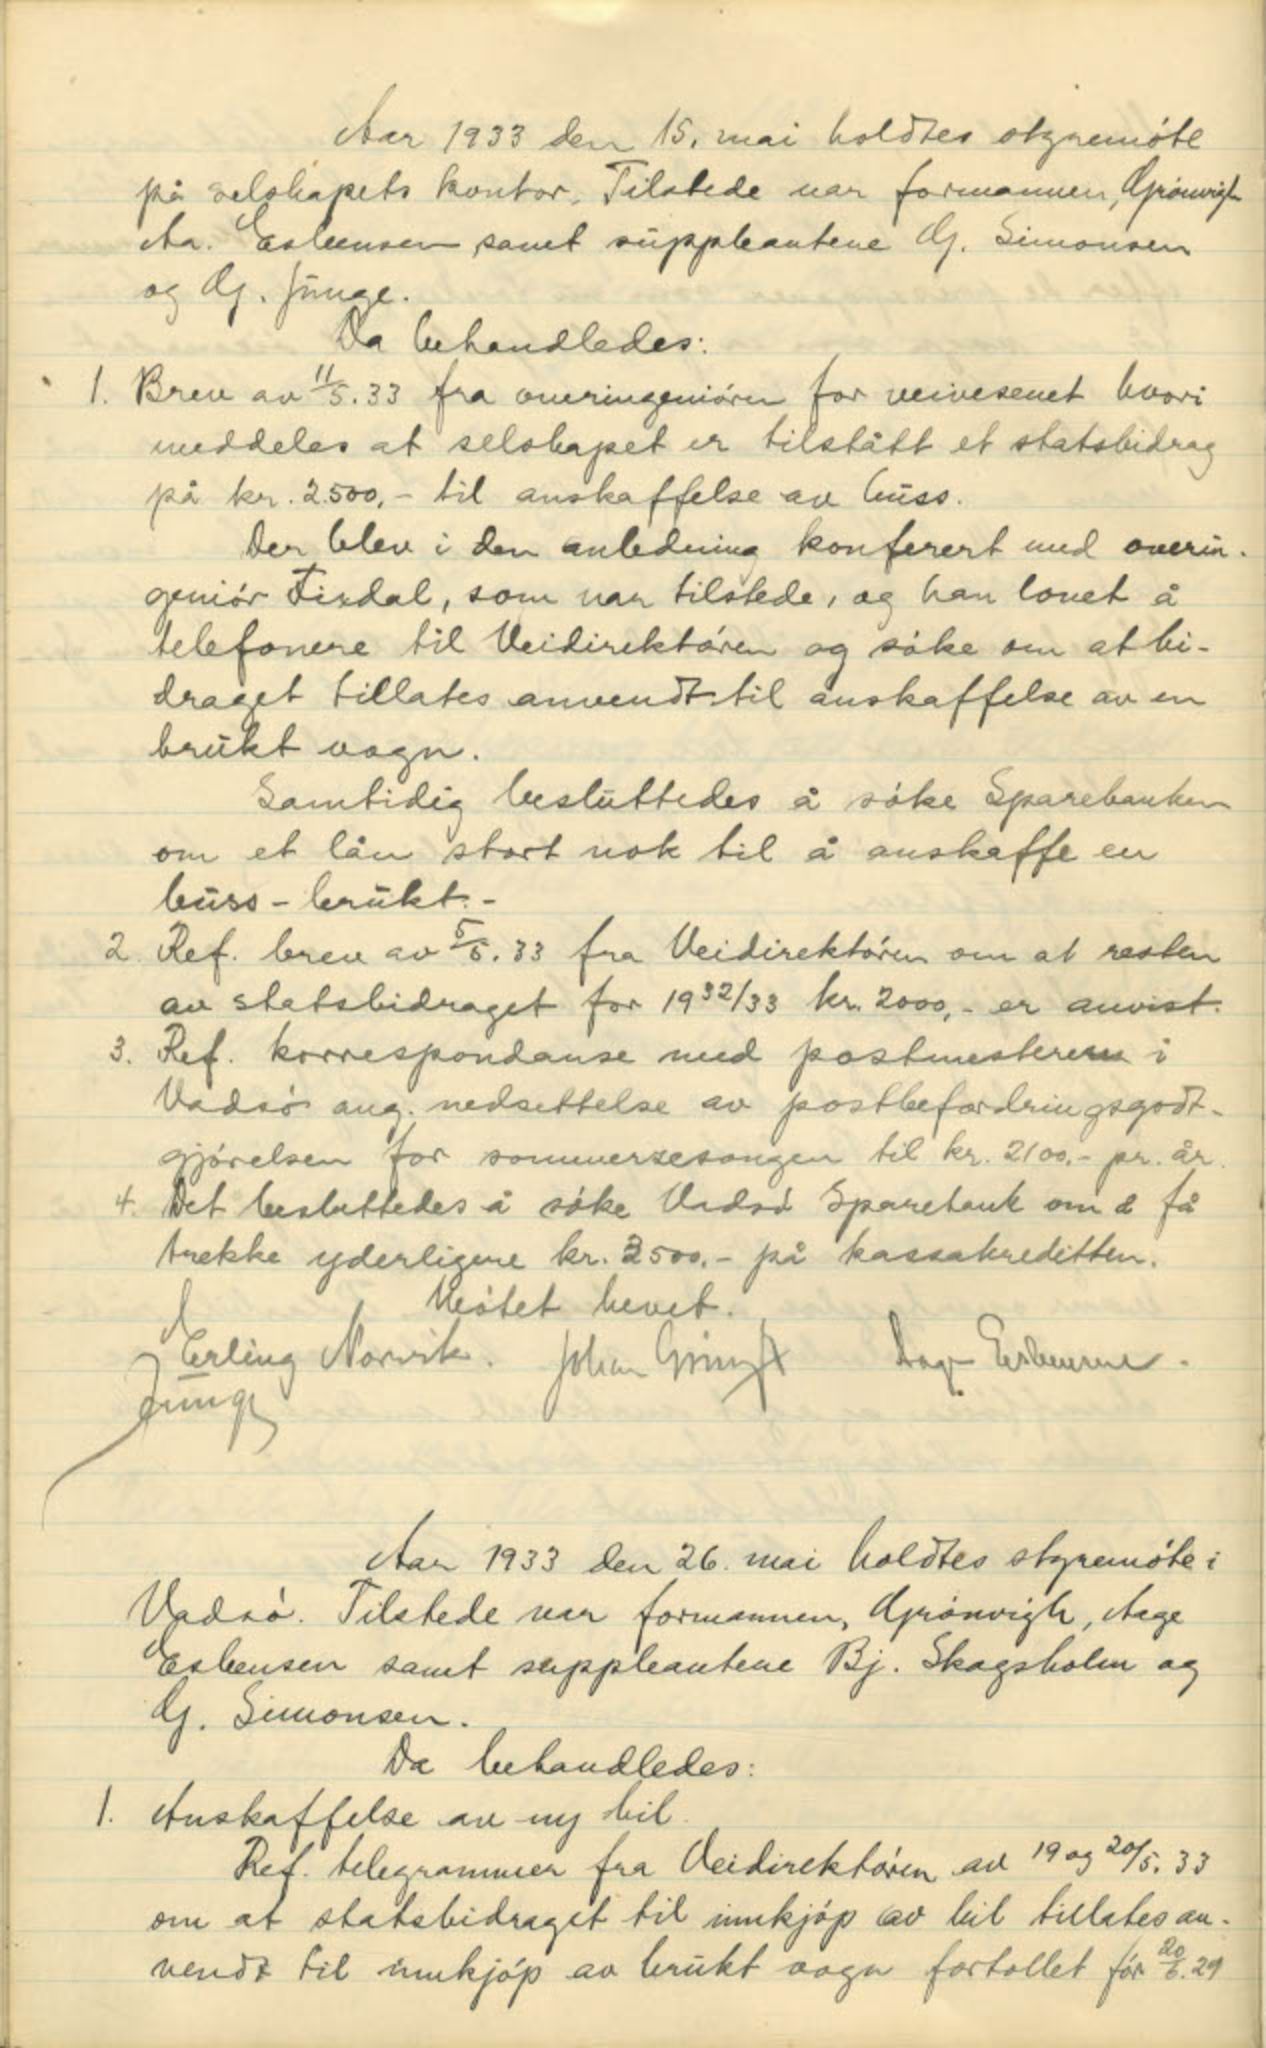 Aar 1933 den 15. mai holdtes styremöte
på selskapets kontor. Tilstede var formannen, Grönvigh
Aa. Esbensen, samt suppleantene G. Simonsen
og G. Junge.
Da behandledes:
1. Brev av 11/5.33 fra overingeniören for veivesenet hvori
meddeles at selskapet er tilstått et statsbidrag
på kr. 2.500,- til anskaffelse av buss.
Der blev i den anledning konferert med overin-
geniör Tixdal, som var tilstede, og han lovet å
telefonere til Veidirektören og söke om at bi-
draget tillates anvendt til anskaffelse av en
brukt vogn.
Samtidig besluttedes å söke Sparebanken
om et lån stort nok til å anskaffe en
buss - brukt.-
2. Ref. brev av 5/5.33 fra Veidirektören om at resten
av statsbidraget for 1932/33 kr. 2000,- er anvist.
3. Ref. korrespondanse med postmesteren i
Vadsö ang. nedsettelse av postbefordringsgodt-
gjörelsen for sommersesongen til kr. 2100.- pr. år.
4. Det besluttedes å söke Vadsö Sparebank om å få
trekke yderligere kr. 2500.- på kassakreditten.
Mötet hevet.
Erling Norvik. Johan Grönvigh Aage Esbensen.
Junge
Aar 1933 den 26. mai holdtes styremöte i
Vadsö. Tilstede var formannen, Grönvigh, Aage
Esbensen samt suppleantene Bj. Skogsholm og
G. Simonsen.
Da behandledes:
1. Anskaffelse av ny bil.
Ref. telegrammer fra Veidirektören av 19 og 20/5.33
om at statsbidraget til innkjöp av bil tillates an-
vendt til innkjöp av brukt vogn fortollet för 20/6.29